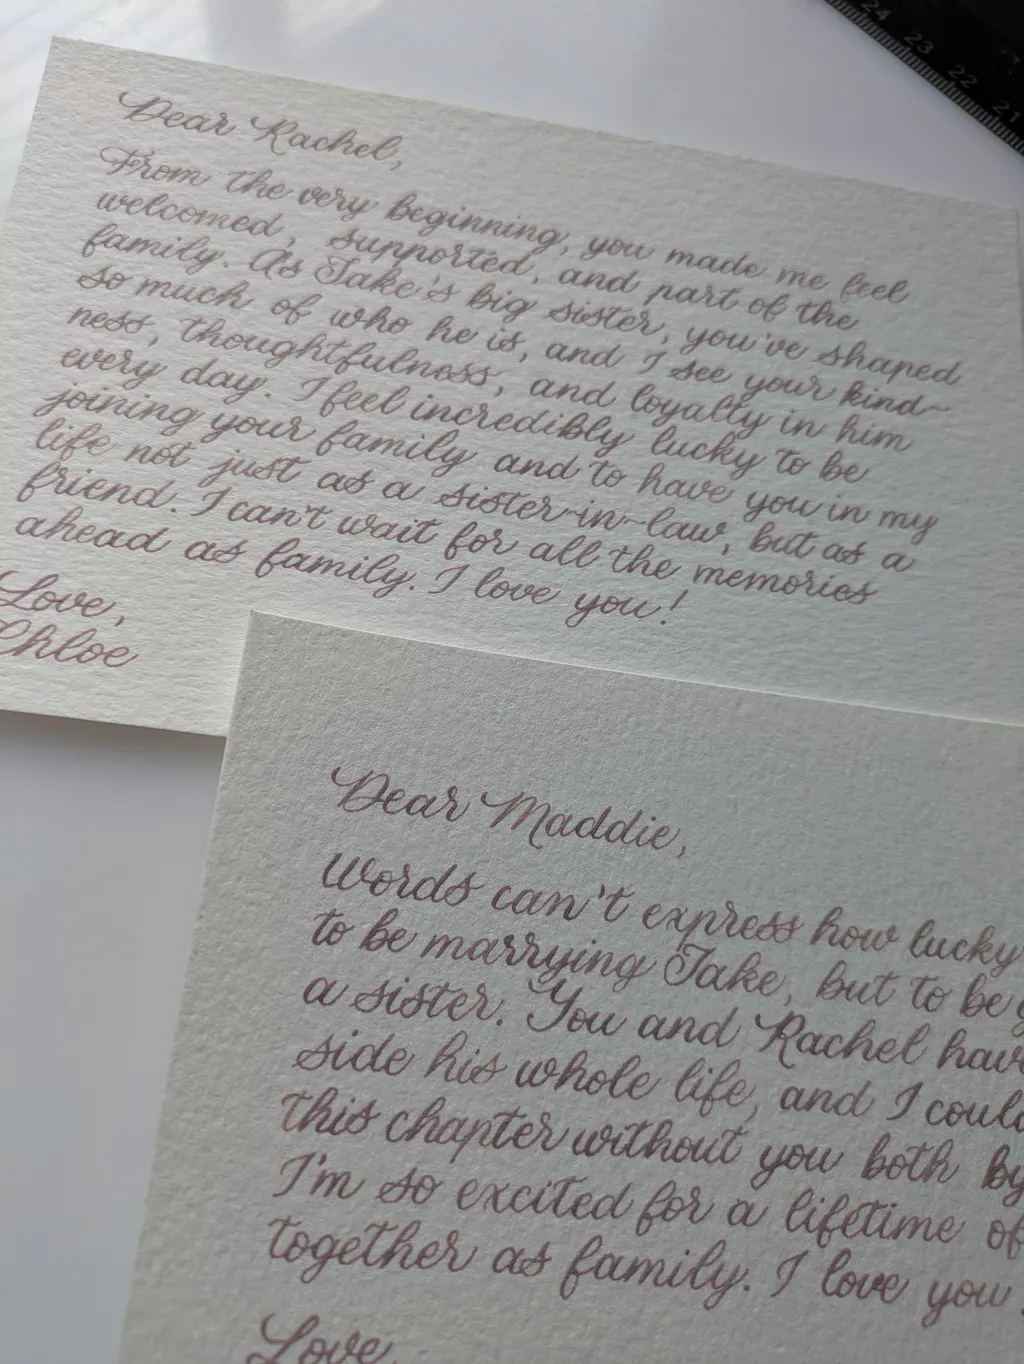 24
23
22
21
Dear Rachel,
From the very beginning, you made me feel
welcomed, supported, and part of the
family. As Jake's big sister, you've shaped
so much of who he is, and I see your kind-
ness, thoughtfulness, and loyalty in him
every day. I feel incredibly lucky to be
joining your family and to have you in my
life not just as a sister-in-law, but as a
friend. I can't wait for all the memories
ahead as family. I love you!
Love,
Chloe
Dear Maddie,
Words can't express how lucky
to be marrying Jake, but to be
a sister. You and Rachel have
side his whole life, and I could
this chapter without you both by
I'm so excited for a lifetime of
together as family. I love you
Love,